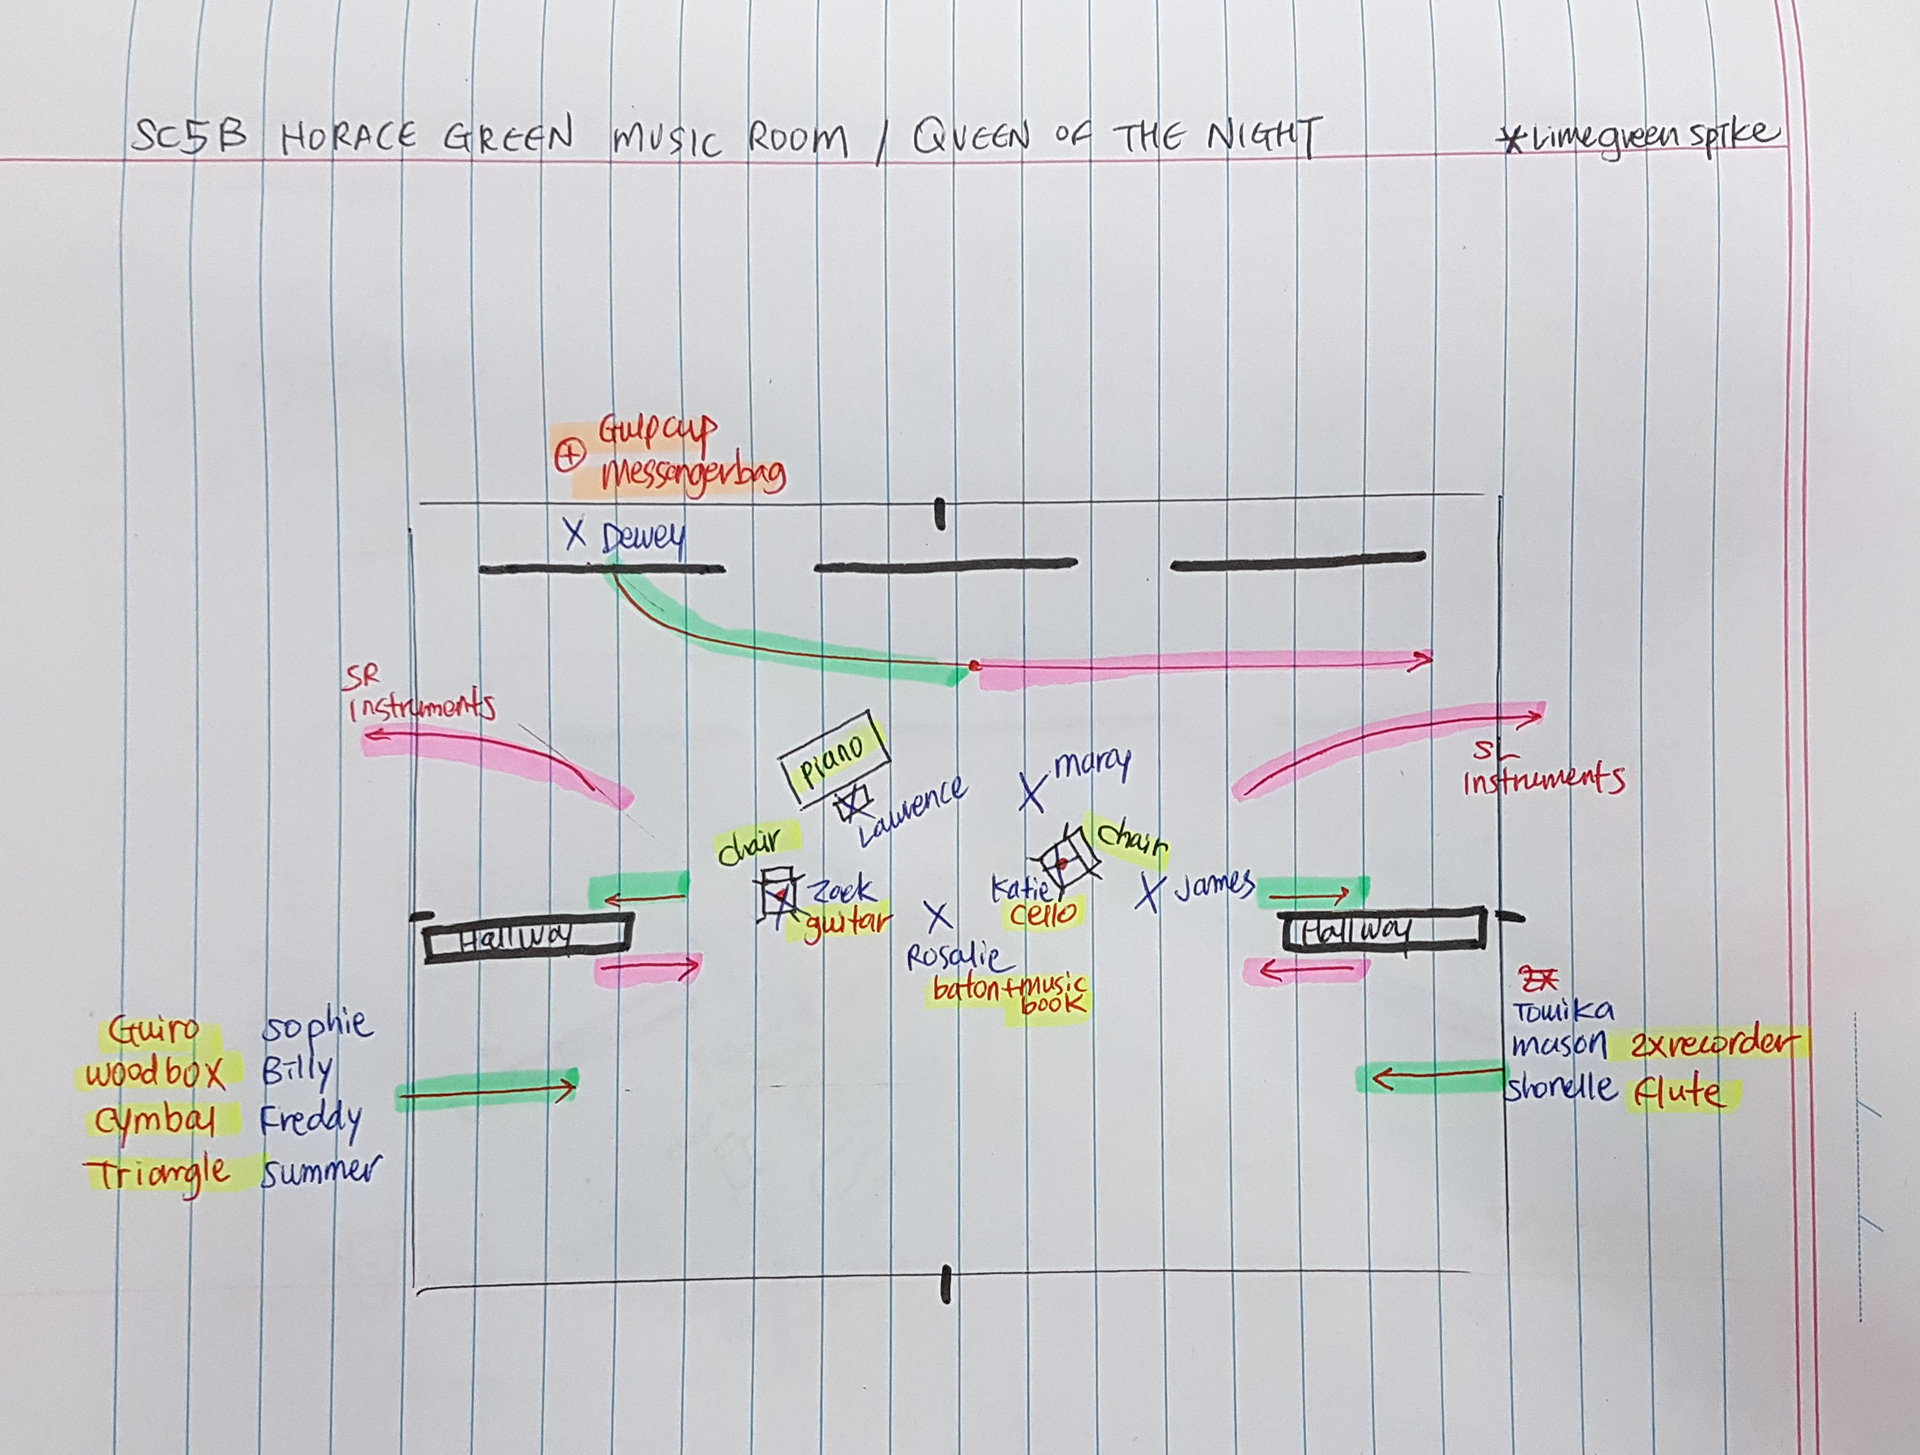 SC5B HORACE GREEN MUSIC ROOM / QUEEN OF THE NIGHT
*Limegreen spike
Gulpcup
Messengerbag
X Dewey
SR
Instruments
piano
Laurence
X maray
SL
Instruments
chair
chair
Zack
guitar
Katie
cello
X James
X
Rosalie
baton+music
book
Hallway
Hallway
Guiro Sophie
woodbox Billy
Cymbal Freddy
Triangle Summer
2x
Tomika
mason 2xrecorder
Shonelle flute